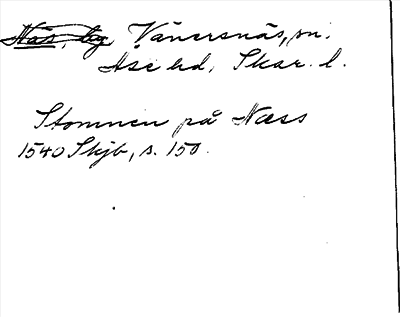 Näs, by Vänersnäs, sn.
Åse hd, Skar. l.
Stomnen på Næss
1540 Skjb, s. 150.